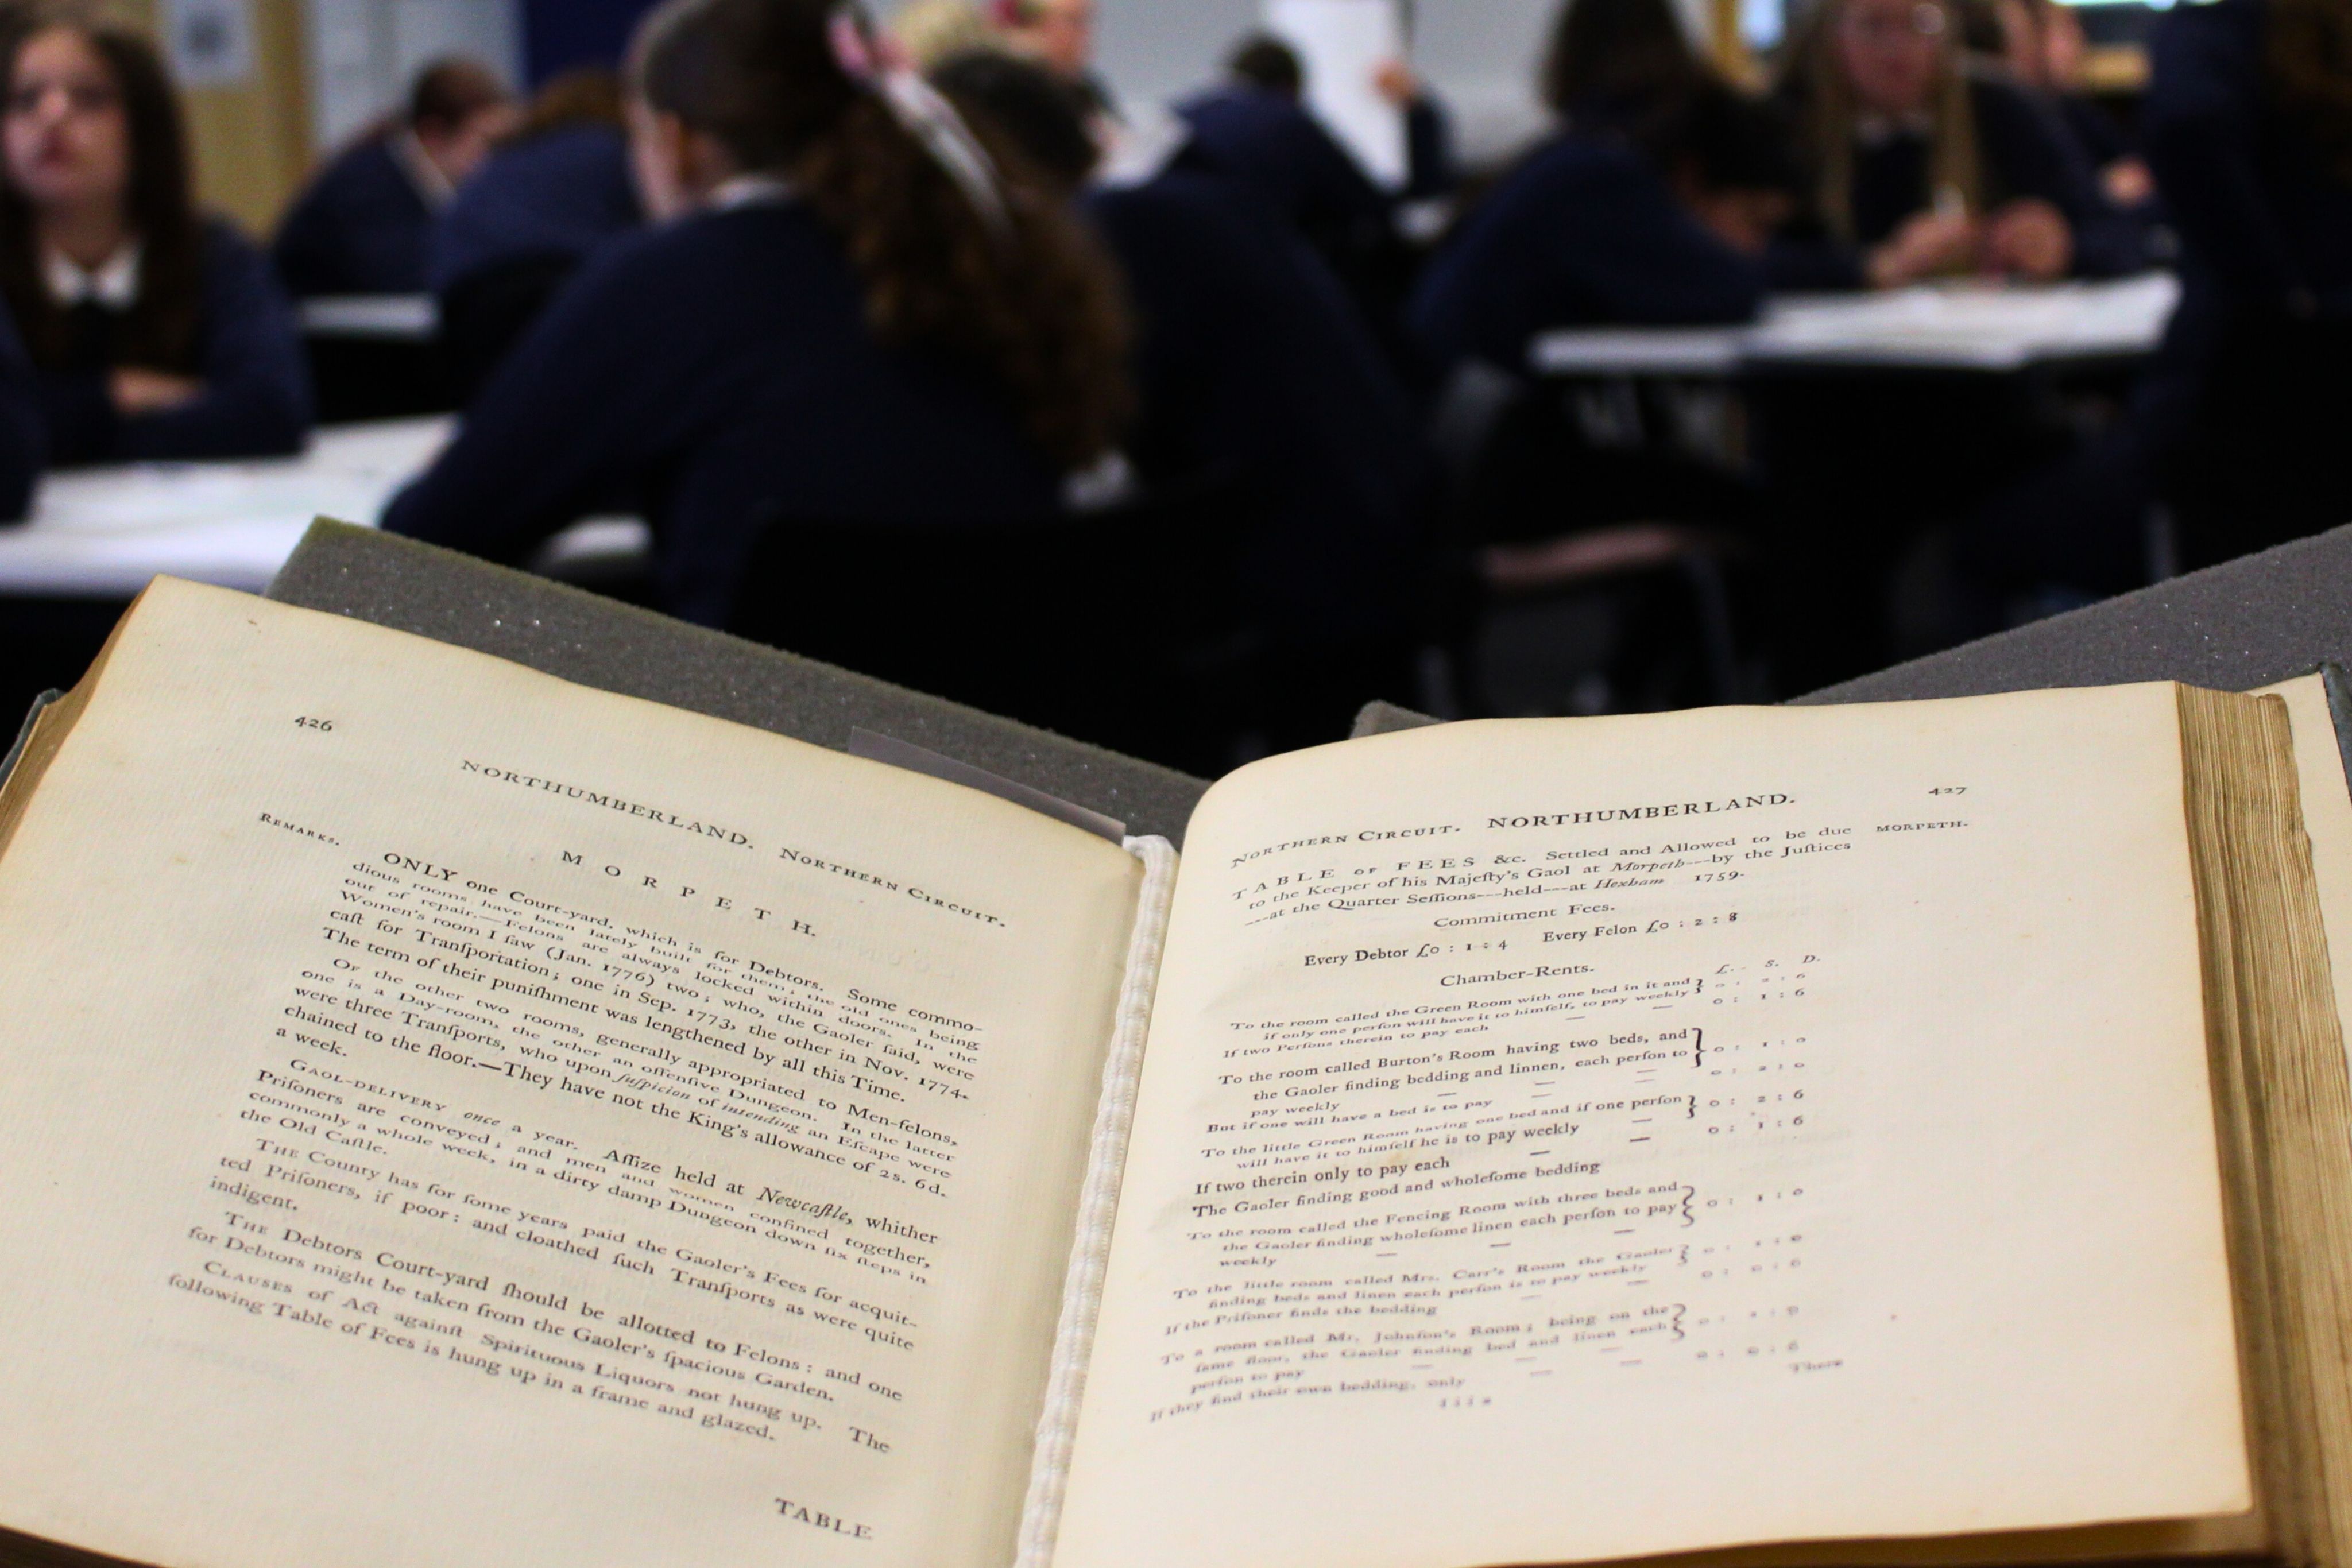 426
NORTHUMBERLAND. NORTHERN CIRCUIT.
MORPETH.
REMARKS.
ONLY one Court-yard, which is for Debtors. Some commo-
dious rooms have been lately built for them; the old ones being
out of repair.—Felons are always locked within doors. In the
Women's room I ſaw (Jan. 1776) two; who, the Gaoler ſaid, were
caſt for Tranſportation; one in Sep. 1773, the other in Nov. 1774.
The term of their puniſhment was lengthened by all this Time.
OF the other two rooms, generally appropriated to Men-felons,
one is a Day-room, the other an offenſive Dungeon. In the latter
were three Tranſports, who upon ſuſpicion of intending an Eſcape were
chained to the floor.—They have not the King's allowance of 2s. 6d.
a week.
GAOL-DELIVERY once a year. Aſſize held at Newcaſtle, whither
Priſoners are conveyed; and men and women confined together,
commonly a whole week, in a dirty damp Dungeon down ſix ſteps in
the Old Caſtle.
THE County has for ſome years paid the Gaoler's Fees for acquit-
ted Priſoners, if poor: and cloathed ſuch Tranſports as were quite
indigent.
THE Debtors Court-yard ſhould be allotted to Felons: and one
for Debtors might be taken from the Gaoler's ſpacious Garden.
CLAUSES of Act againſt Spirituous Liquors not hung up. The
following Table of Fees is hung up in a frame and glazed.
TABLE
NORTHERN CIRCUIT. NORTHUMBERLAND. 427
MORPETH.
TABLE OF FEES &c. Settled and Allowed to be due
to the Keeper of his Majeſty's Gaol at Morpeth---by the Juſtices
---at the Quarter Seſſions---held---at Hexham 1759.
Commitment Fees.
Every Debtor £0 : 1 : 4 Every Felon £0 : 2 : 8
Chamber-Rents. £. S. D.
To the room called the Green Room with one bed in it and } 0 : 2 : 6
if only one perſon will have it to himſelf, to pay weekly
If two Perſons therein to pay each — — 0 : 1 : 6
To the room called Burton's Room having two beds, and } 0 : 1 : 0
the Gaoler finding bedding and linnen, each perſon to
pay weekly — — —
But if one will have a bed is to pay — — 0 : 2 : 0
To the little Green Room having one bed and if one perſon } 0 : 2 : 6
will have it to himſelf he is to pay weekly —
If two therein only to pay each — — 0 : 1 : 6
The Gaoler finding good and wholeſome bedding
To the room called the Fencing Room with three beds and } 0 : 1 : 0
the Gaoler finding wholeſome linen each perſon to pay
weekly — — —
To the little room called Mrs. Carr's Room the Gaoler } 0 : 1 : 0
finding beds and linen each perſon is to pay weekly
If the Priſoner finds the bedding — — 0 : 0 : 6
To a room called Mr. Johnſon's Room; being on the } 0 : 1 : 0
ſame floor, the Gaoler finding bed and linen each
perſon to pay — — —
If they find their own bedding, only — 0 : 0 : 6
There